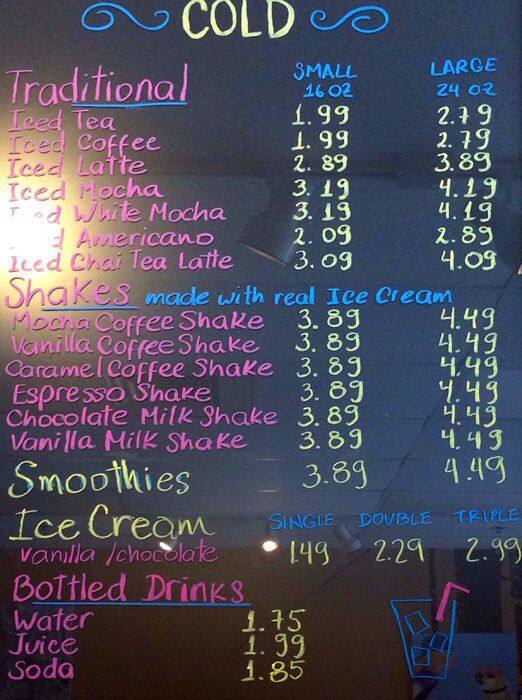 COLD
Traditional SMALL 16 OZ LARGE 24 OZ
Iced Tea 1.99 2.79
Iced Coffee 1.99 2.79
Iced Latte 2.89 3.89
Iced Mocha 3.19 4.19
Iced White Mocha 3.19 4.19
Americano 2.09 2.89
Iced Chai Tea Latte 3.09 4.09
Shakes made with real Ice Cream
Mocha Coffee Shake 3.89 4.49
Vanilla Coffee Shake 3.89 4.49
Caramel Coffee Shake 3.89 4.49
Espresso Shake 3.89 4.49
Chocolate Milk Shake 3.89 4.49
Vanilla Milk Shake 3.89 4.49
Smoothies 3.89 4.49
Ice Cream SINGLE DOUBLE TRIPLE
Vanilla /chocolate 1.49 2.29 2.99
Bottled Drinks
Water 1.75
Juice 1.99
Soda 1.85